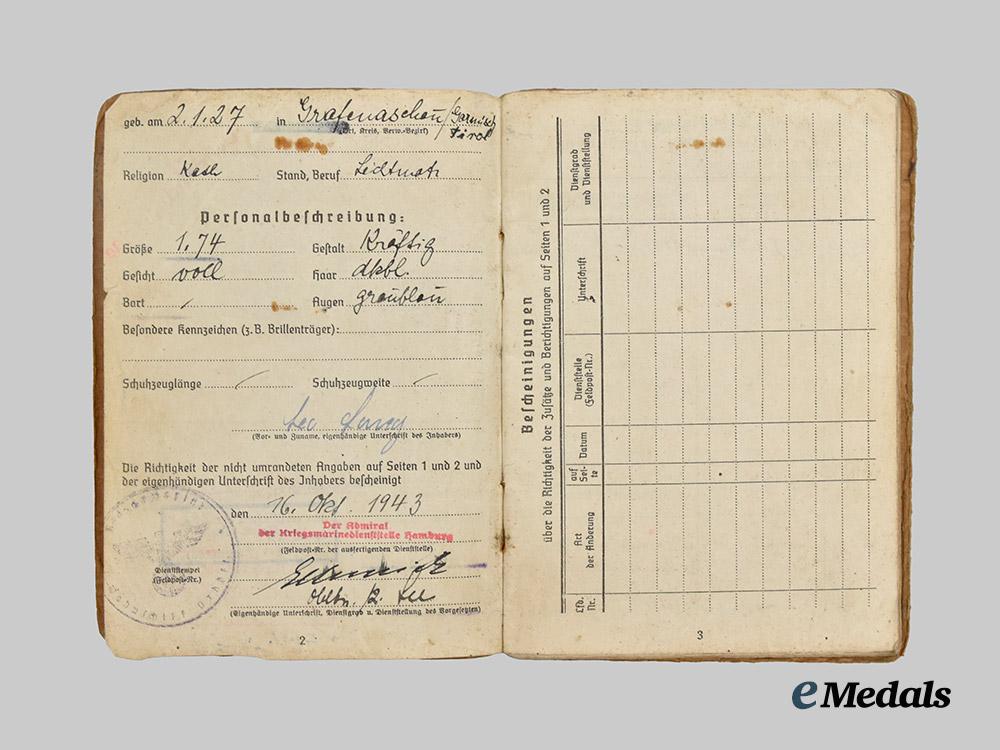 geb. am 2.1.27 in Grafenaschau/Garmisch
(Ort, Kreis, Verw.-Bezirk) Tirol
Religion Kath Stand, Beruf
Personalbeschreibung:
Größe 1.74 Gestalt Kräftig
Gesicht voll Haar dkbl.
Bart / Augen graublau
Besondere Kennzeichen (z.B. Brillenträger):
Schuhzeuglänge / Schuhzeugweite /
Leo
(Vor- und Zuname, eigenhändige Unterschrift des Inhabers)
Die Richtigkeit der nicht umrandeten Angaben auf Seiten 1 und 2 und
der eigenhändigen Unterschrift des Inhabers bescheinigt
den 16. Okt. 1943
Der Admiral
der Kriegsmarinedienststelle Hamburg
(Feldpost-Nr. der ausfertigenden Dienststelle)
Dienststempel
(Feldpost-Nr.)
Obltn. z. See
(Eigenhändige Unterschrift, Dienstgrad u. Dienststellung des Vorgesetzten)
2
Bescheinigungen
über die Richtigkeit der Zusätze und Berichtigungen auf Seiten 1 und 2
Lfd. Nr.
Art der Änderung
auf Sei-te
Datum
Dienststelle (Feldpost-Nr.)
Unterschrift
Dienstgrad und Dienststellung
3
eMedals